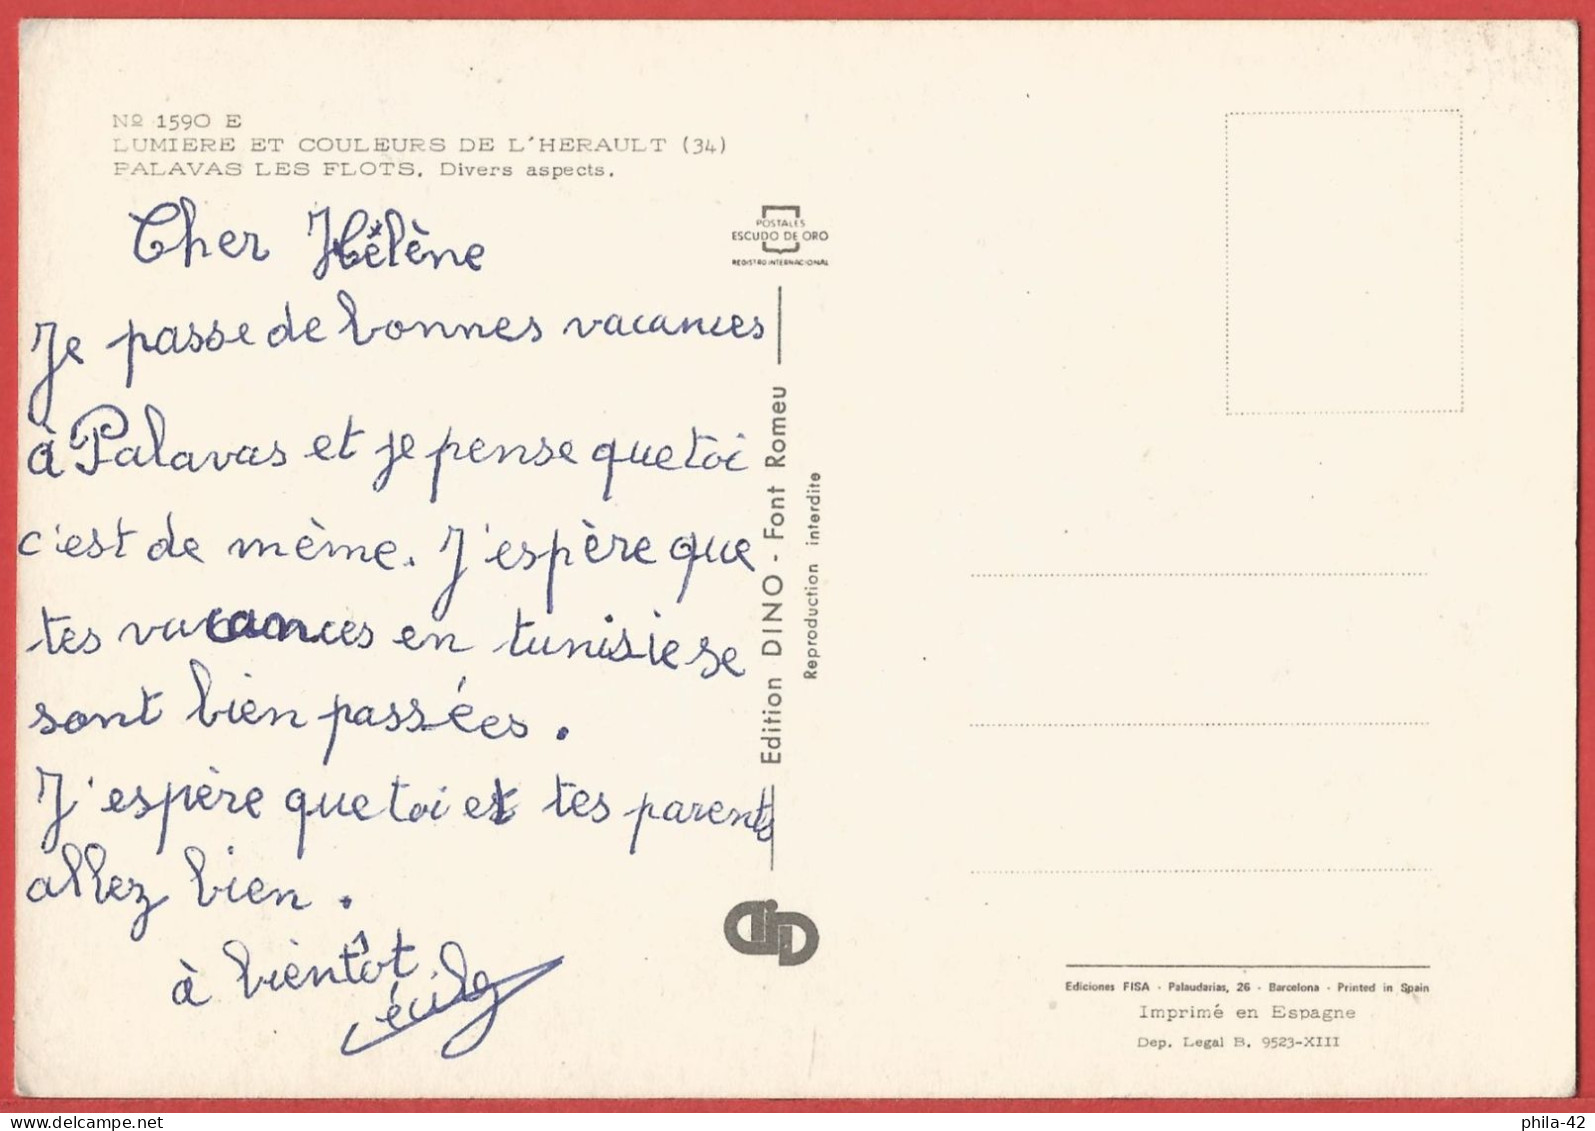 Nº 1590 E
LUMIERE ET COULEURS DE L'HERAULT (34)
PALAVAS LES FLOTS. Divers aspects.
Cher Hélène
Je passe de bonnes vacances
à Palavas et je pense que toi
c'est de mème. J'espère que
tes vacances en tunisie se
sont bien passées.
J'espère que toi et tes parents
allez bien.
à bientôt
POSTALES
ESCUDO DE ORO
REGISTRO INTERNACIONAL
Edition DINO - Font Romeu
Reproduction interdite
Ediciones FISA - Palaudarias, 26 - Barcelona - Printed in Spain
Imprimé en Espagne
Dep. Legal B. 9523-XIII
phila-42